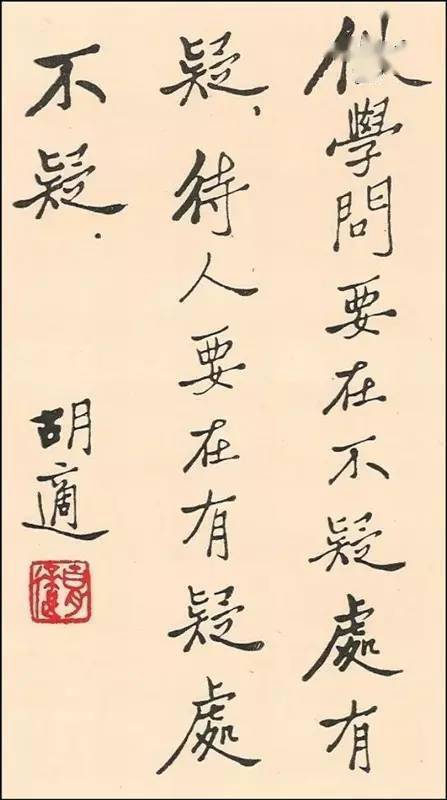 學問要在不疑處有
疑，待人要在有疑處
不疑．
胡適